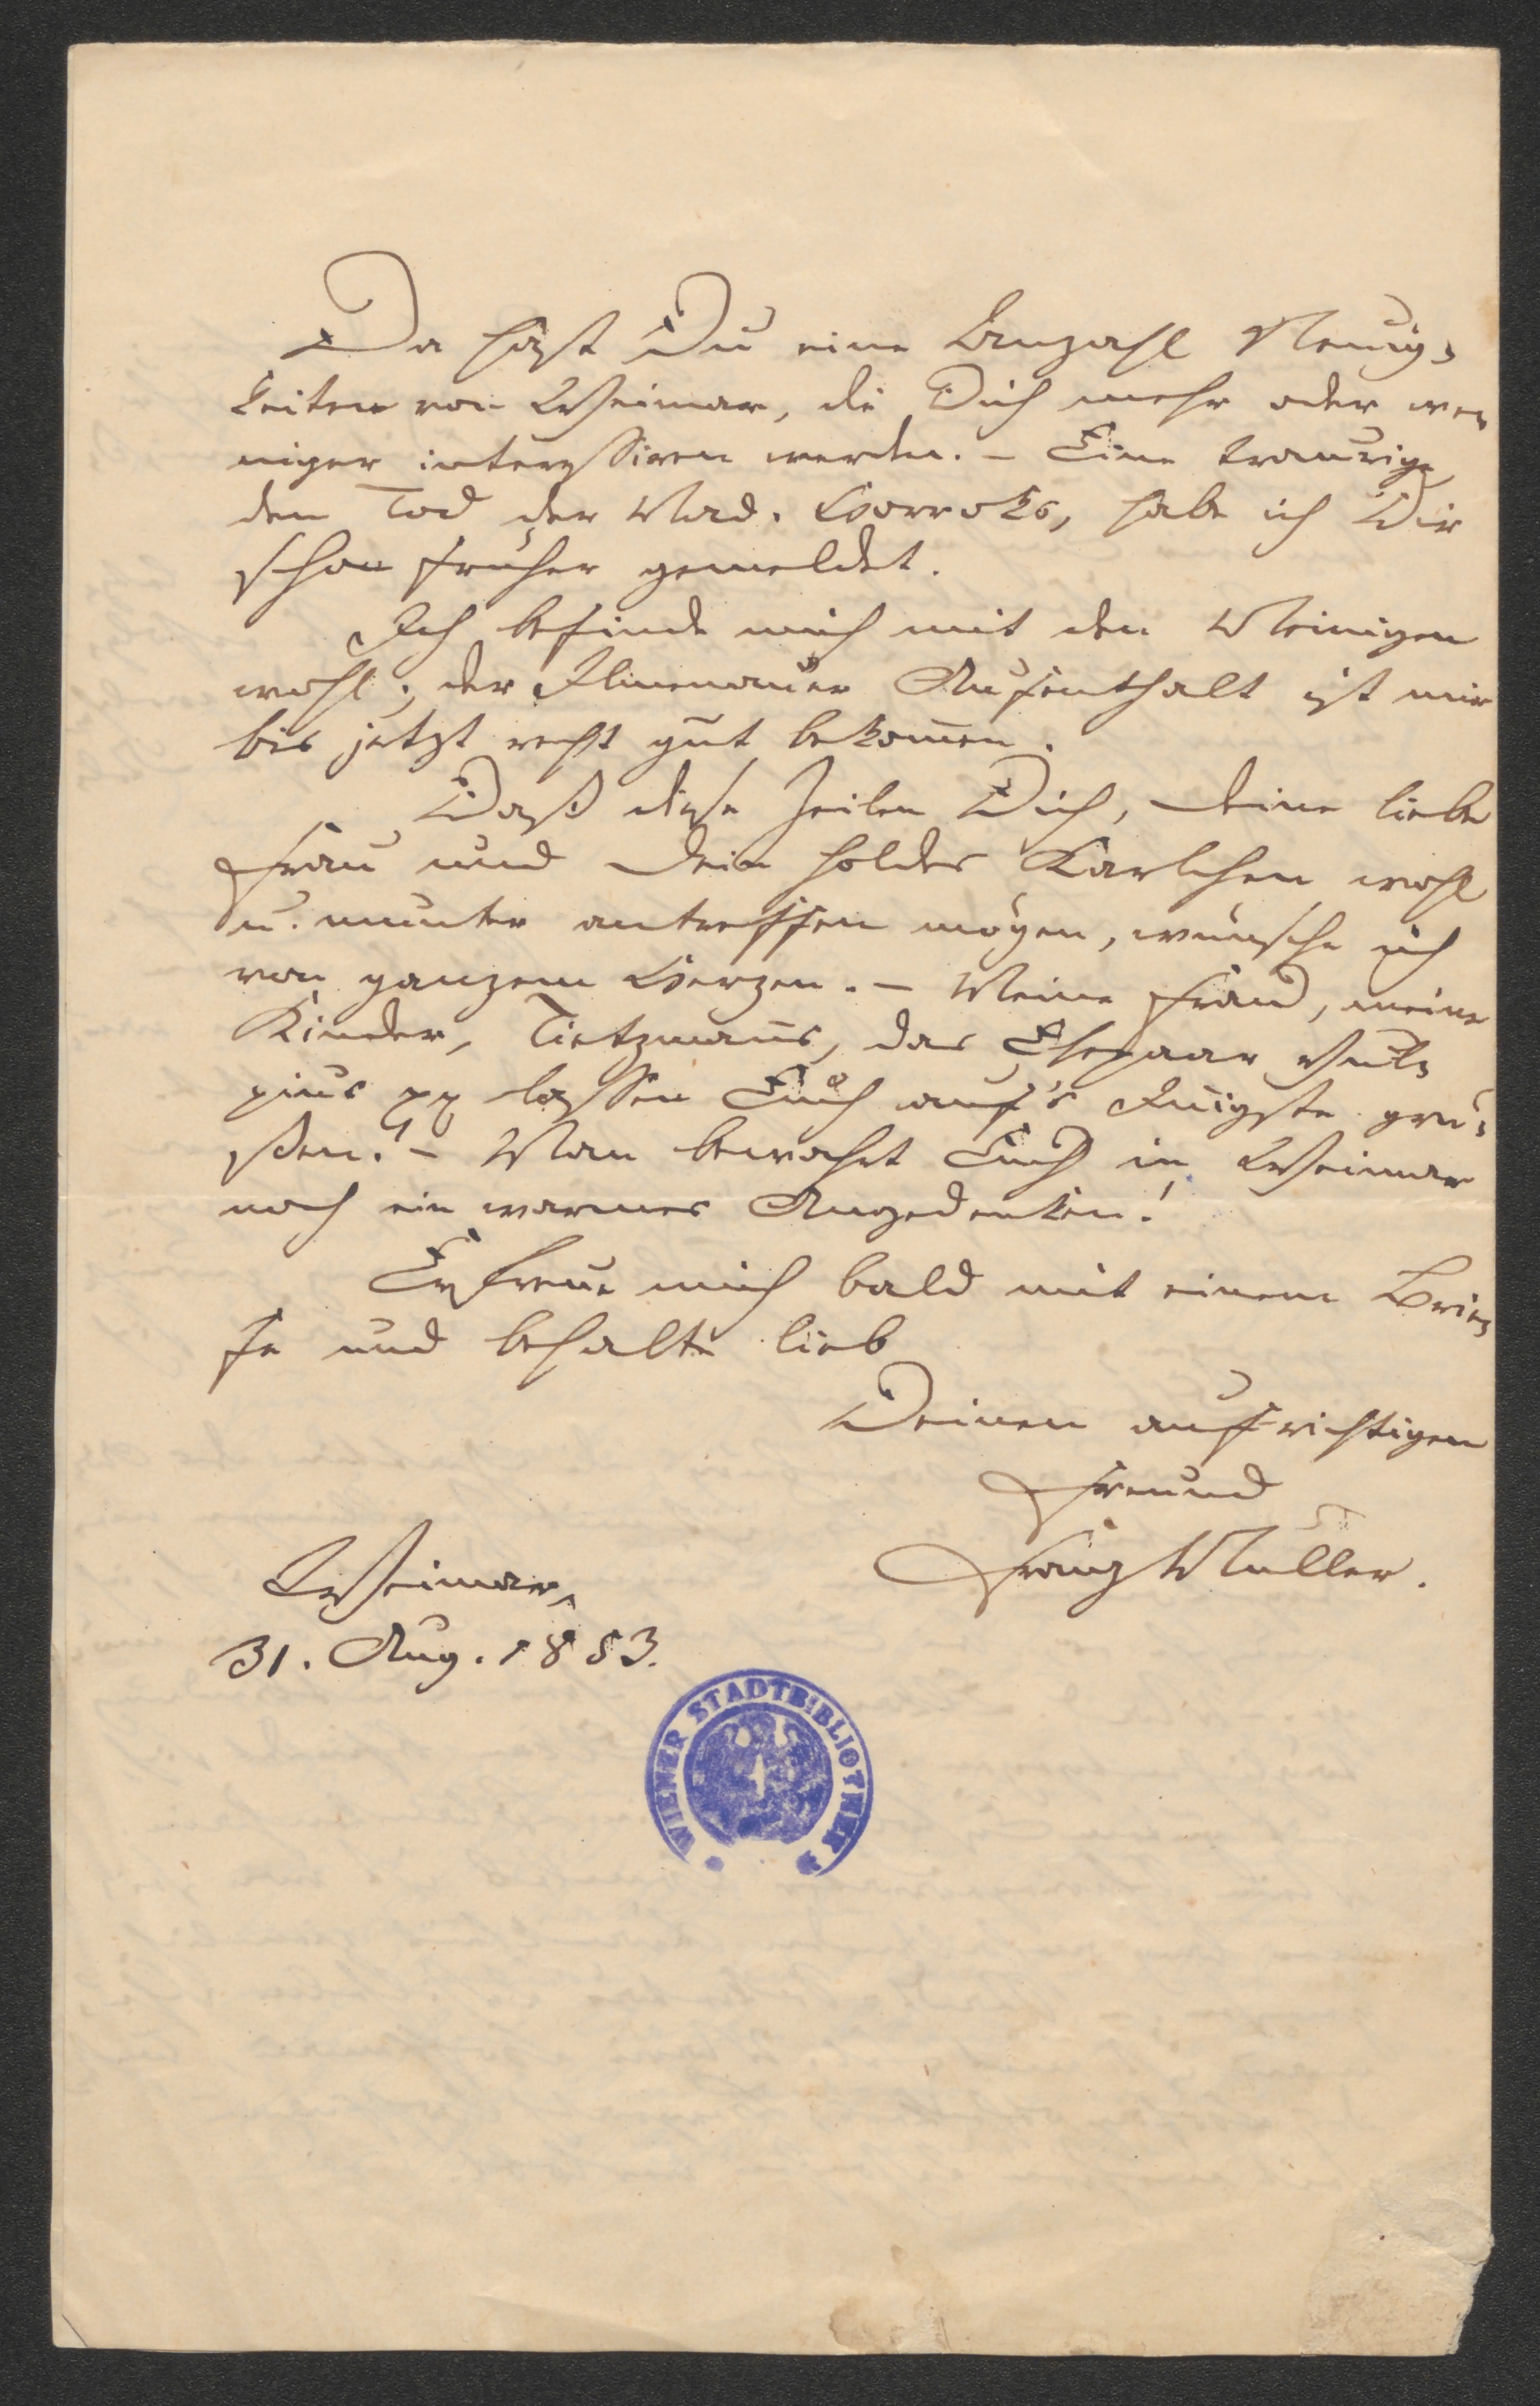 Da hast Du eine Anzahl Neuig-
keiten von Weimar, die Dich mehr oder we-
niger interessiren werden. – Eine traurige,
den Tod der Mad. Horroks, habe ich Dir
schon früher gemeldet.
Ich befinde mich mit den Meinigen
wohl; der Ilmenauer Aufenthalt ist mir
bis jetzt recht gut bekom̄en.
Daß diese Zeilen Dich, Deine liebe
Frau und Dein holdes Karlchen wohl
u. munter antreffen mögen, wünsche ich
von ganzem Herzen. – Meine Frau, meine
Kinder, Tietzmanns, das Ehepaar Vul-
pius pp lassen Euch auf's Innigste grü-
ßen. – Man bewahrt Euch in Weimar
noch ein warmes Angedenken!
Erfreue mich bald mit einem Brie-
fe und behalte lieb
Deinen aufrichtigen
Freund
Franz Müller.
Weimar,
31. Aug. 1853.
WIENER STADTBIBLIOTHEK